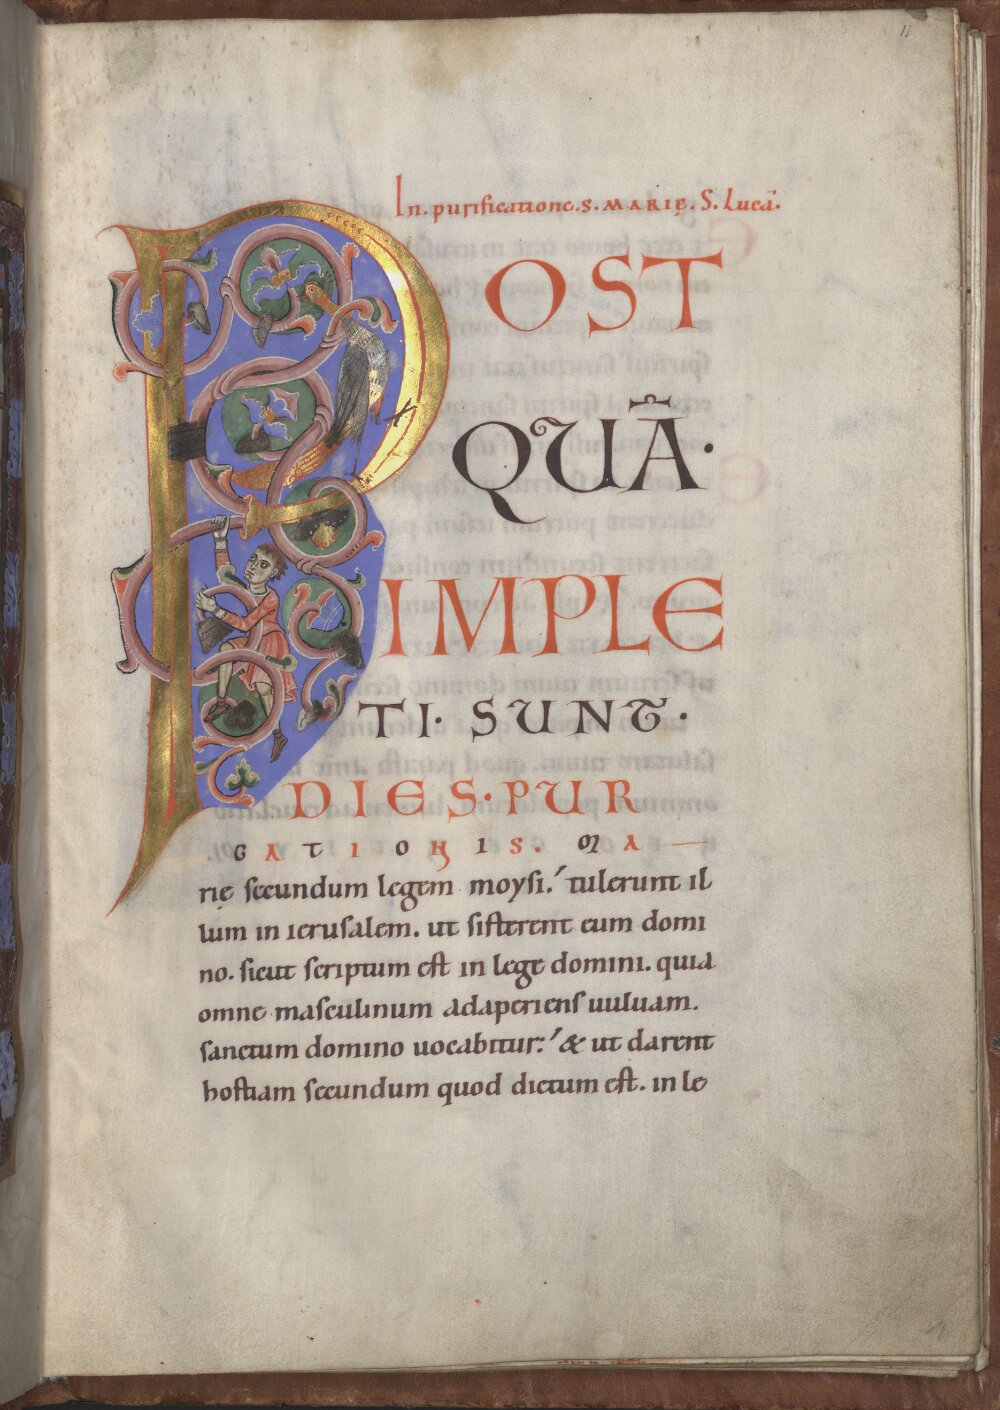 11
In. purificatione. s. MARIĘ. S. Lucā.
POST
QUĀ·
IMPLE
TI· SUNT·
DIES·PUR
GATIONIS. MA
rię secundum legem moysi. tulerunt il
lum in ierusalem. ut sisterent eum domi
no. sicut scriptum est in lege domini. quia
omne masculinum adaperiens uuluam.
sanctum domino uocabitur: & ut darent
hostiam secundum quod dictum est. in le